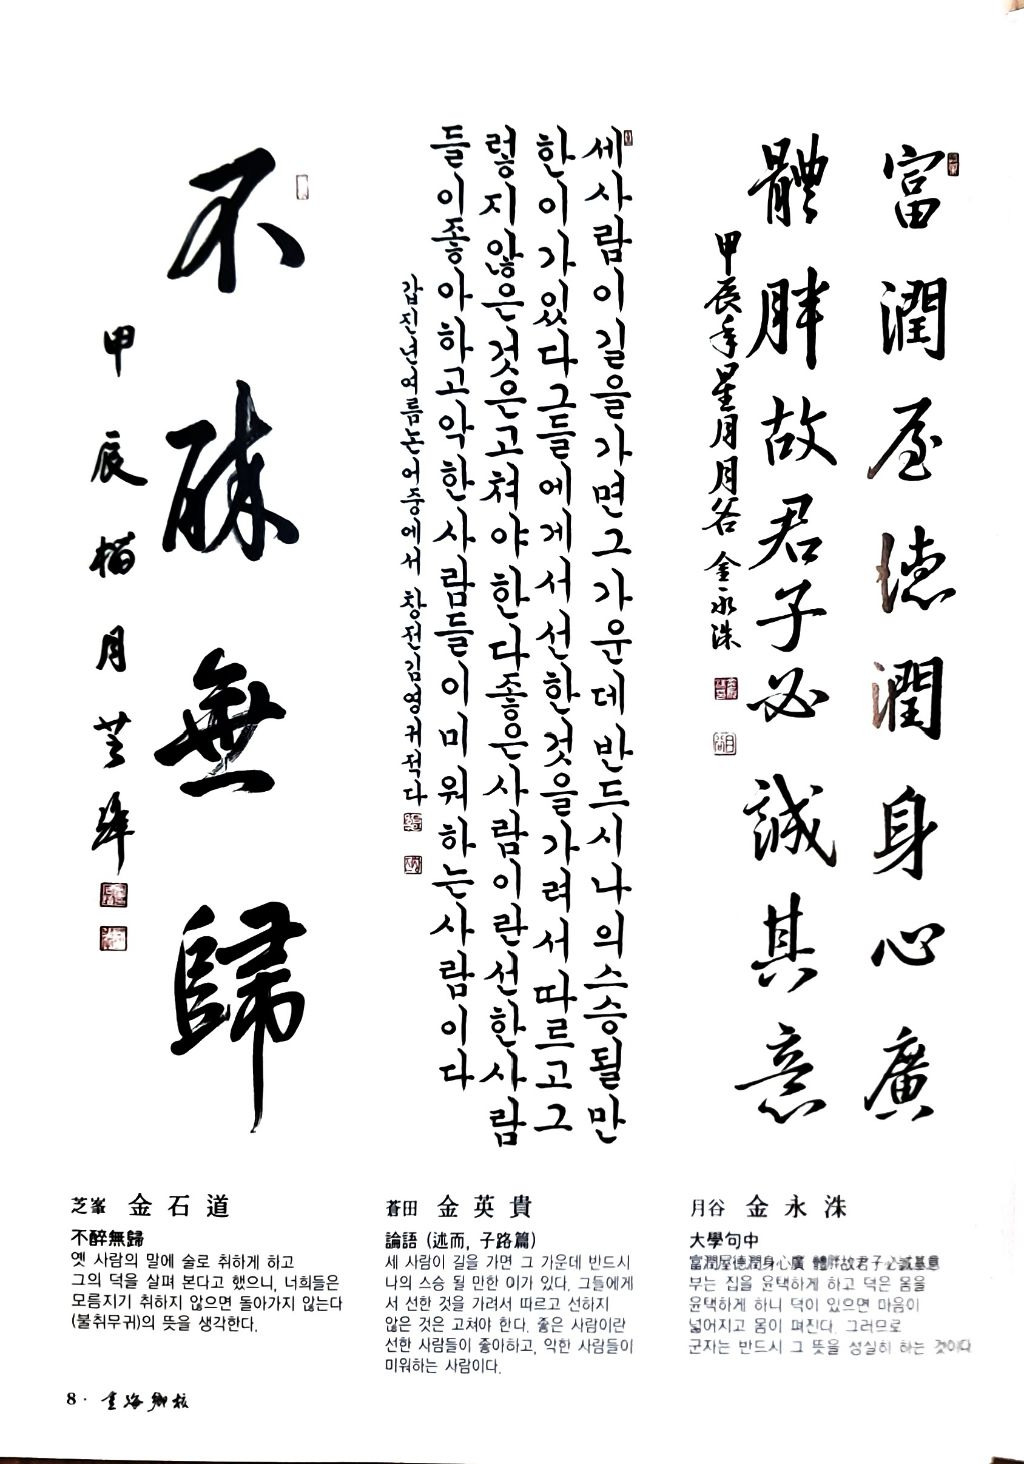 富潤屋德潤身心廣
體胖故君子必誠其意
甲辰年星月月谷 金永洙
세사람이길을가면그가운데반드시나의스승될만
한이가있다그들에게서선한것을가려서따르고그
렇지않은것은고쳐야한다좋은사람이란선한사람
들이좋아하고악한사람들이미워하는사람이다
갑진년여름논어중에서 창전김영귀적다
不醉無歸
甲辰榴月芝峯
芝峯 金石道
不醉無歸
옛 사람의 말에 술로 취하게 하고
그의 덕을 살펴 본다고 했으니, 너희들은
모름지기 취하지 않으면 돌아가지 않는다
(불취무귀)의 뜻을 생각한다.
蒼田 金英貴
論語 (述而, 子路篇)
세 사람이 길을 가면 그 가운데 반드시
나의 스승 될 만한 이가 있다. 그들에게
서 선한 것을 가려서 따르고 선하지
않은 것은 고쳐야 한다. 좋은 사람이란
선한 사람들이 좋아하고, 악한 사람들이
미워하는 사람이다.
月谷 金永洙
大學句中
富潤屋德潤身心廣 體胖故君子必誠其意
부는 집을 윤택하게 하고 덕은 몸을
윤택하게 하니 덕이 있으면 마음이
넓어지고 몸이 펴진다. 그러므로
군자는 반드시 그 뜻을 성실히 하는 것이다
8 · 書海鄕校